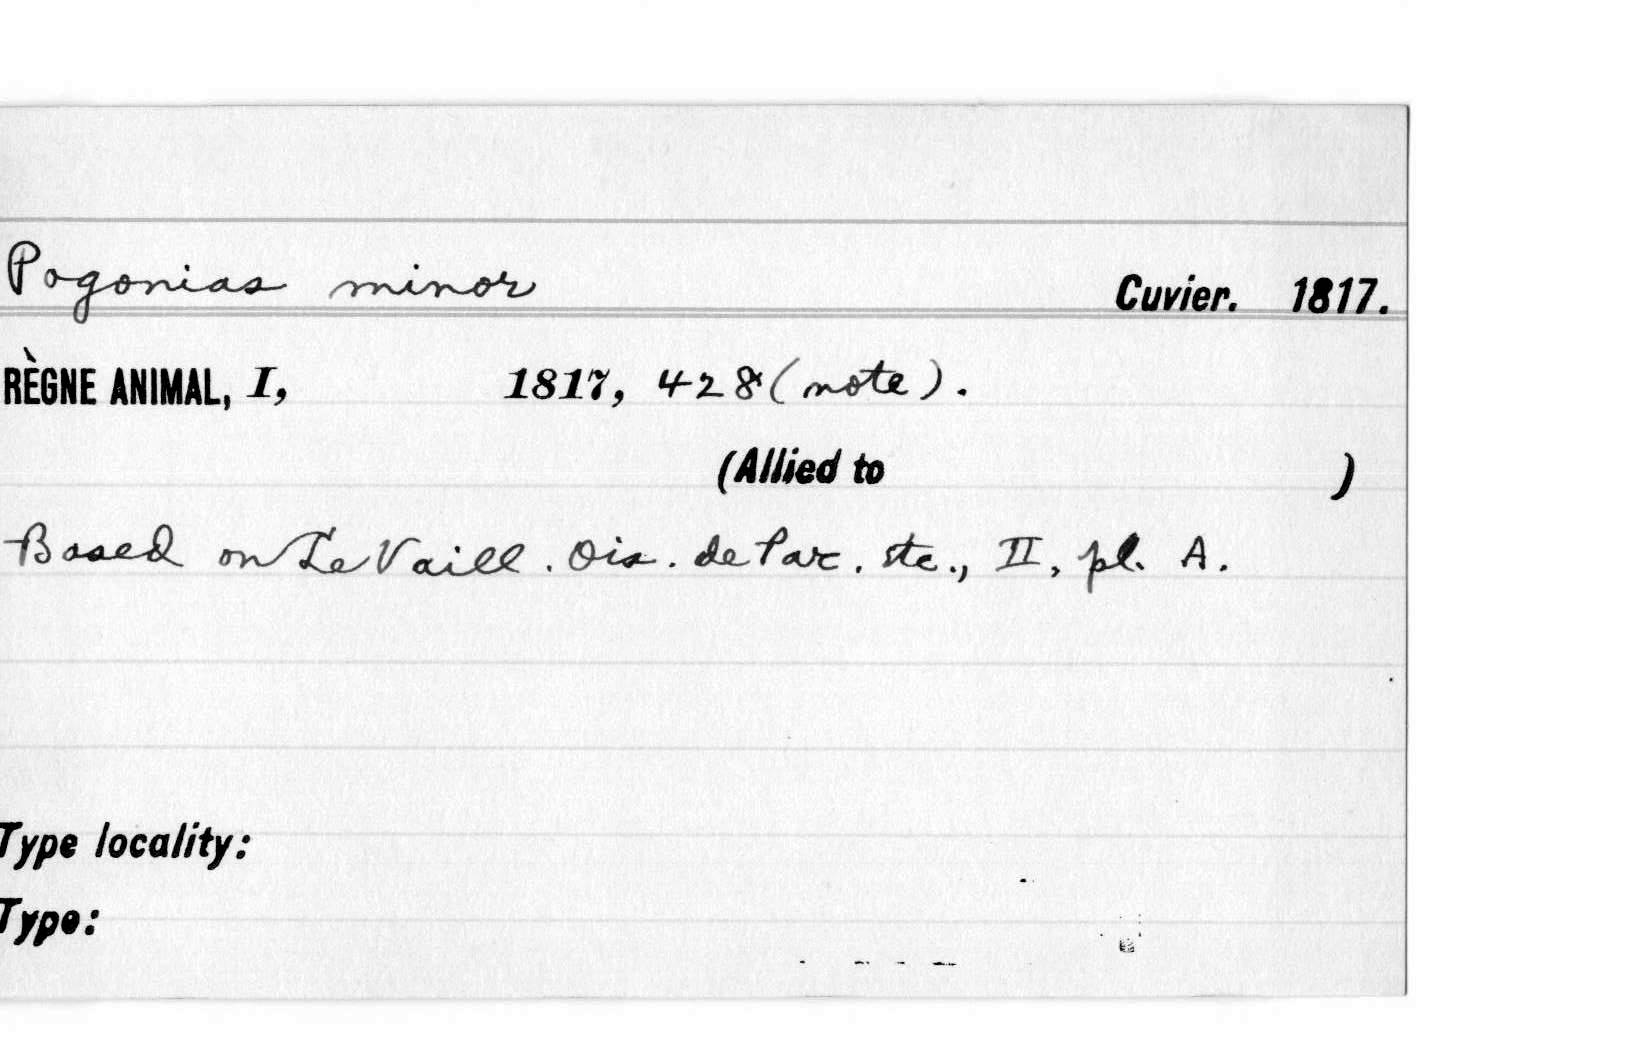 Pogonias minor Cuvier. 1817.
RÈGNE ANIMAL, I, 1817, 428 (note).
(Allied to )
Based on Le Vaill. Ois. de Par. etc., II, pl. A.
Type locality:
Type: